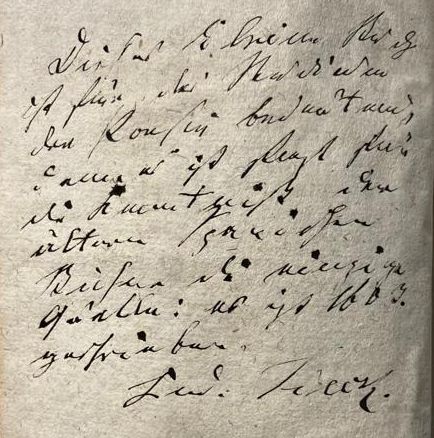 Dieses kleine Buch
ist für das Studium
der Poesie bedeutend,
denn es ist fast für
die Kenntniß der
ältern Spanischen
Bühne die einzige
Quelle: es ist 1603.
geschrieben.
Lud. Tieck.